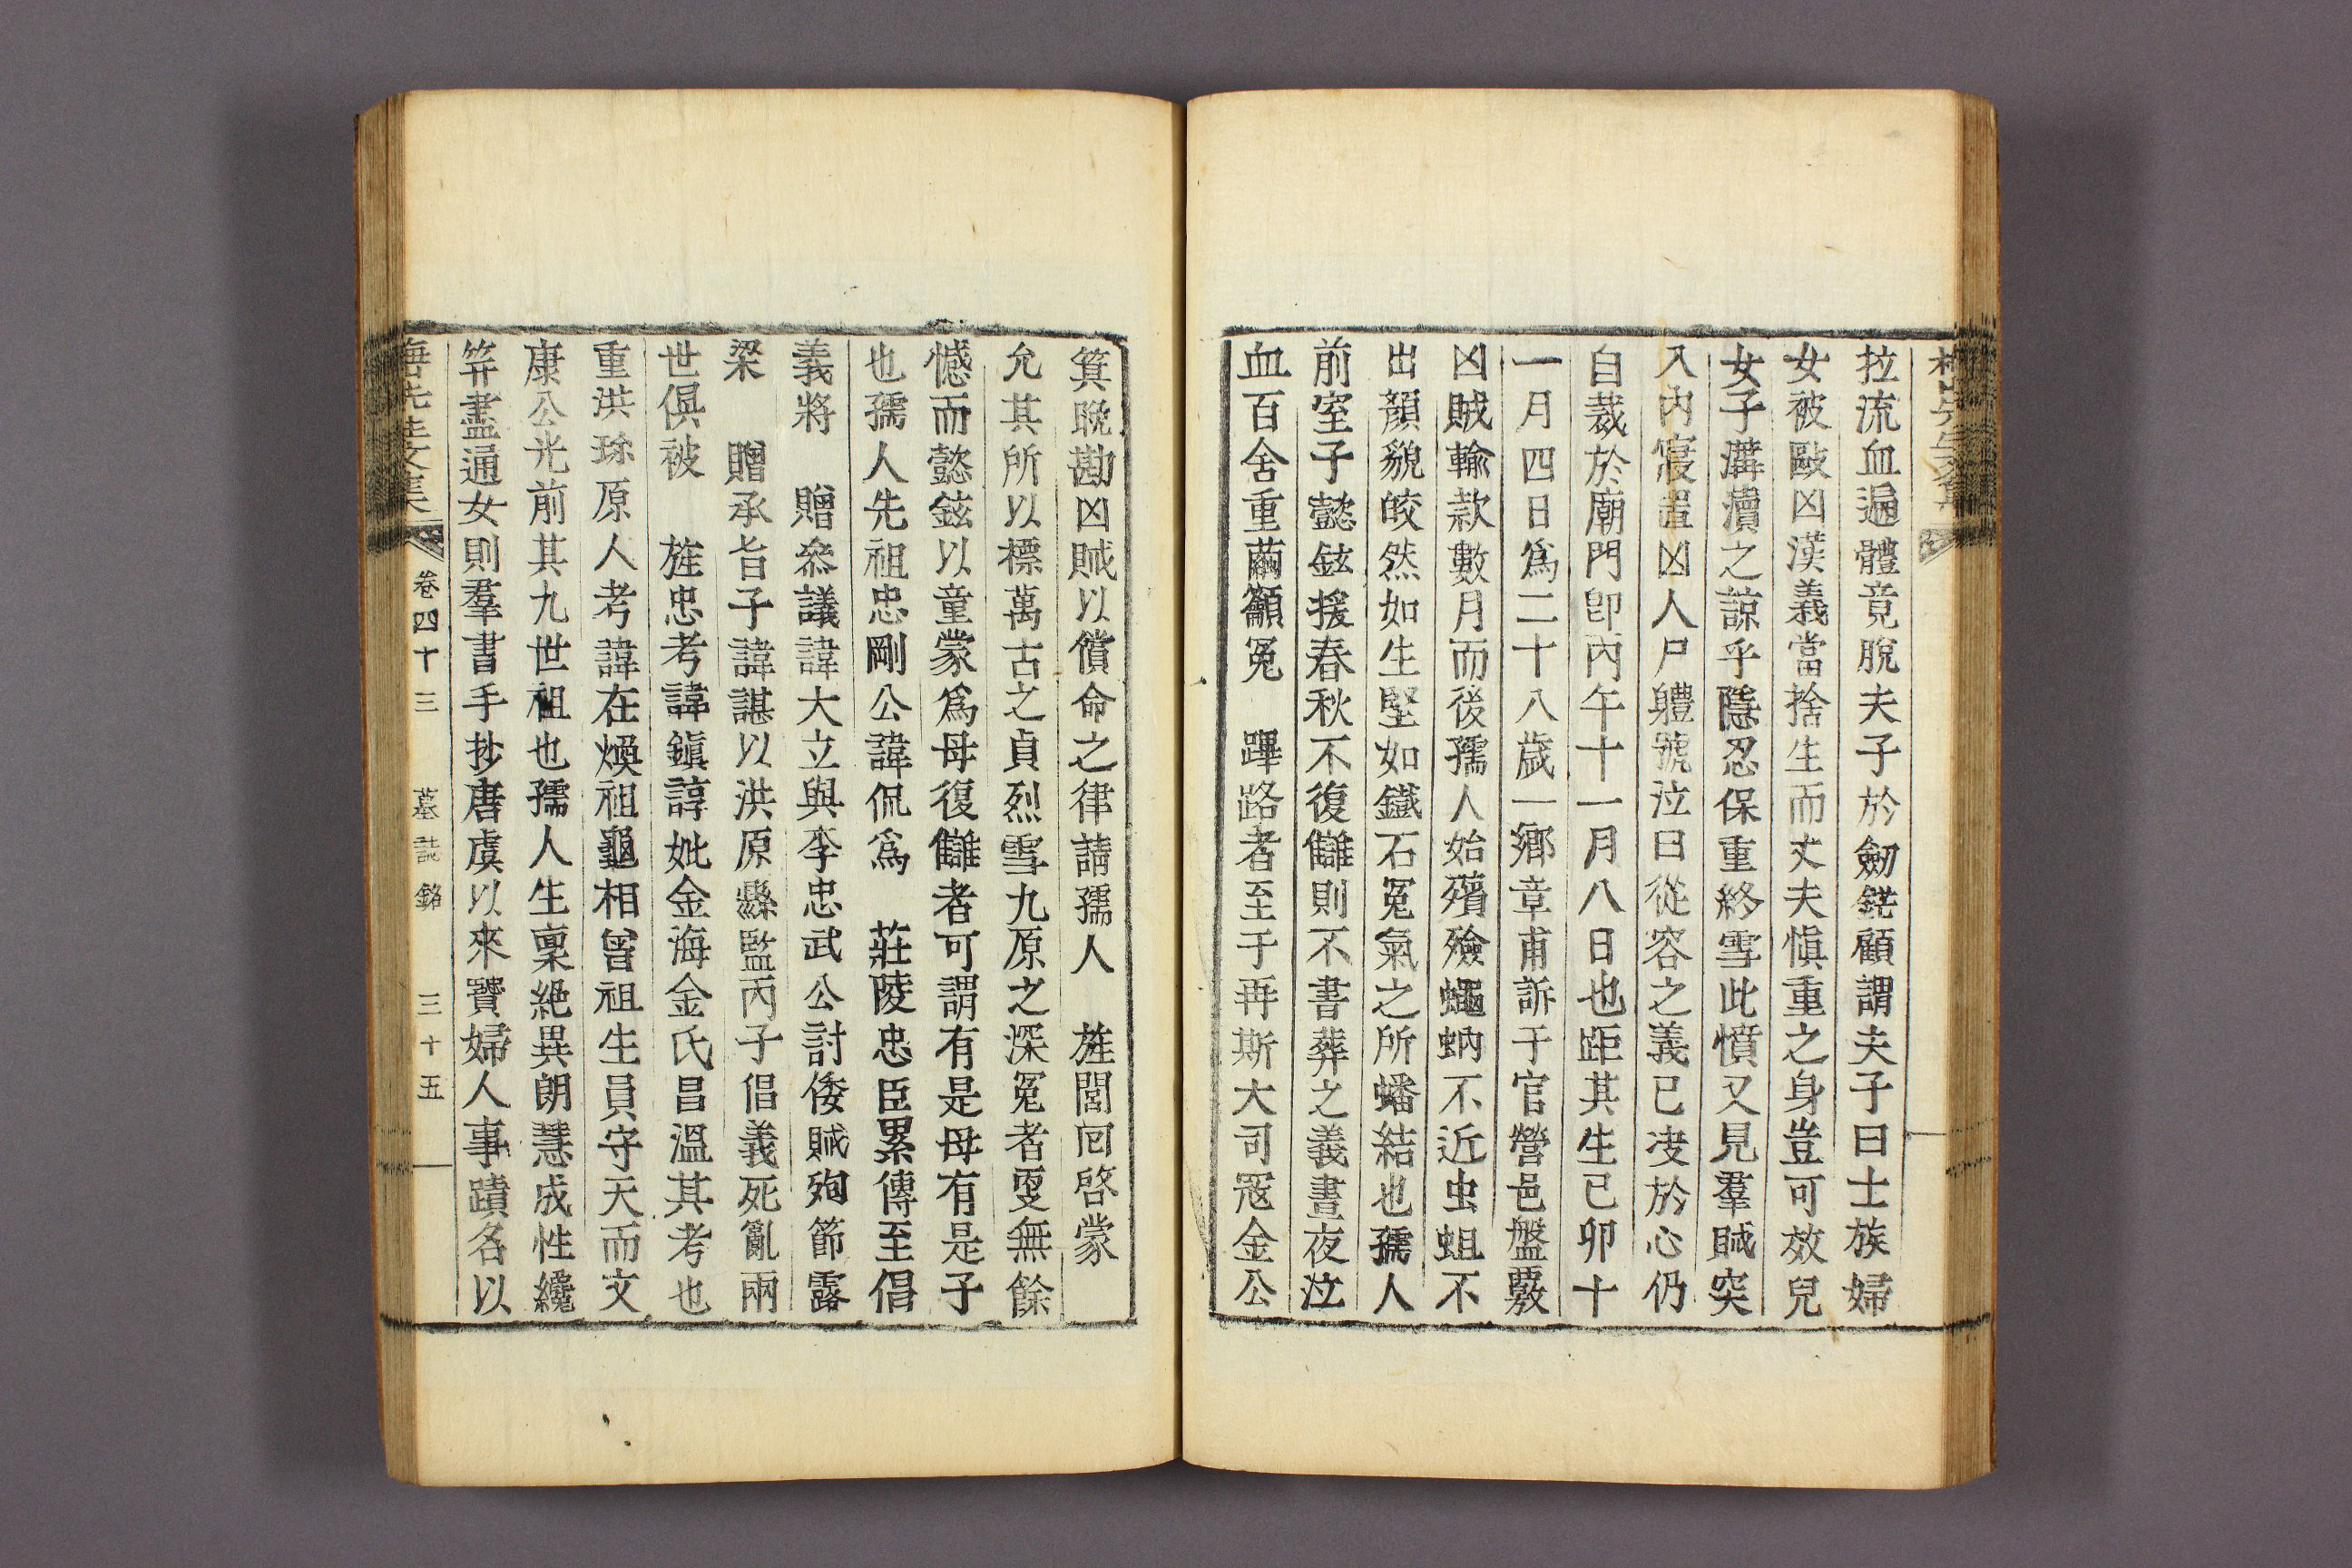 拉流血遍體竟脫夫子於劒鋩顧謂夫子曰士族婦
女被毆凶漢義當捨生而丈夫愼重之身豈可效兒
女子溝瀆之諒乎隱忍保重終雪此憤又見羣賊突
入內寢置凶人尸軆號泣曰從容之義已决於心仍
自裁於廟門卽丙午十一月八日也距其生己卯十
一月四日爲二十八歲一鄕章甫訴于官營邑盤覈
凶賊輸款數月而後孺人始殯殮蠅蚋不近虫蛆不
出顔貌皎然如生堅如鐵石冤氣之所蟠結也孺人
前室子懿鉉援春秋不復讎則不書葬之義晝夜泣
血百舍重繭籲冤 蹕路者至于再斯大司冦金公
箕晩勘凶賊以償命之律請孺人 旌閭囘啓蒙
允其所以標萬古之貞烈雪九原之深冤者更無餘
憾而懿鉉以童蒙爲母復讎者可謂有是母有是子
也孺人先祖忠剛公諱侃爲 莊陵忠臣累傳至倡
義將 贈叅議諱大立與李忠武公討倭賊殉節露
梁 贈承旨子諱諶以洪原縣監丙子倡義死亂兩
世俱被 旌忠考諱鎭諄妣金海金氏昌溫其考也
重洪珎原人考諱在煥祖龜相曾祖生員守天而文
康公光前其九世祖也孺人生稟絶異朗慧成性纔
笄盡通女則羣書手抄唐虞以來賢婦人事蹟名以
先生文集 卷四十三 墓誌銘 三十五